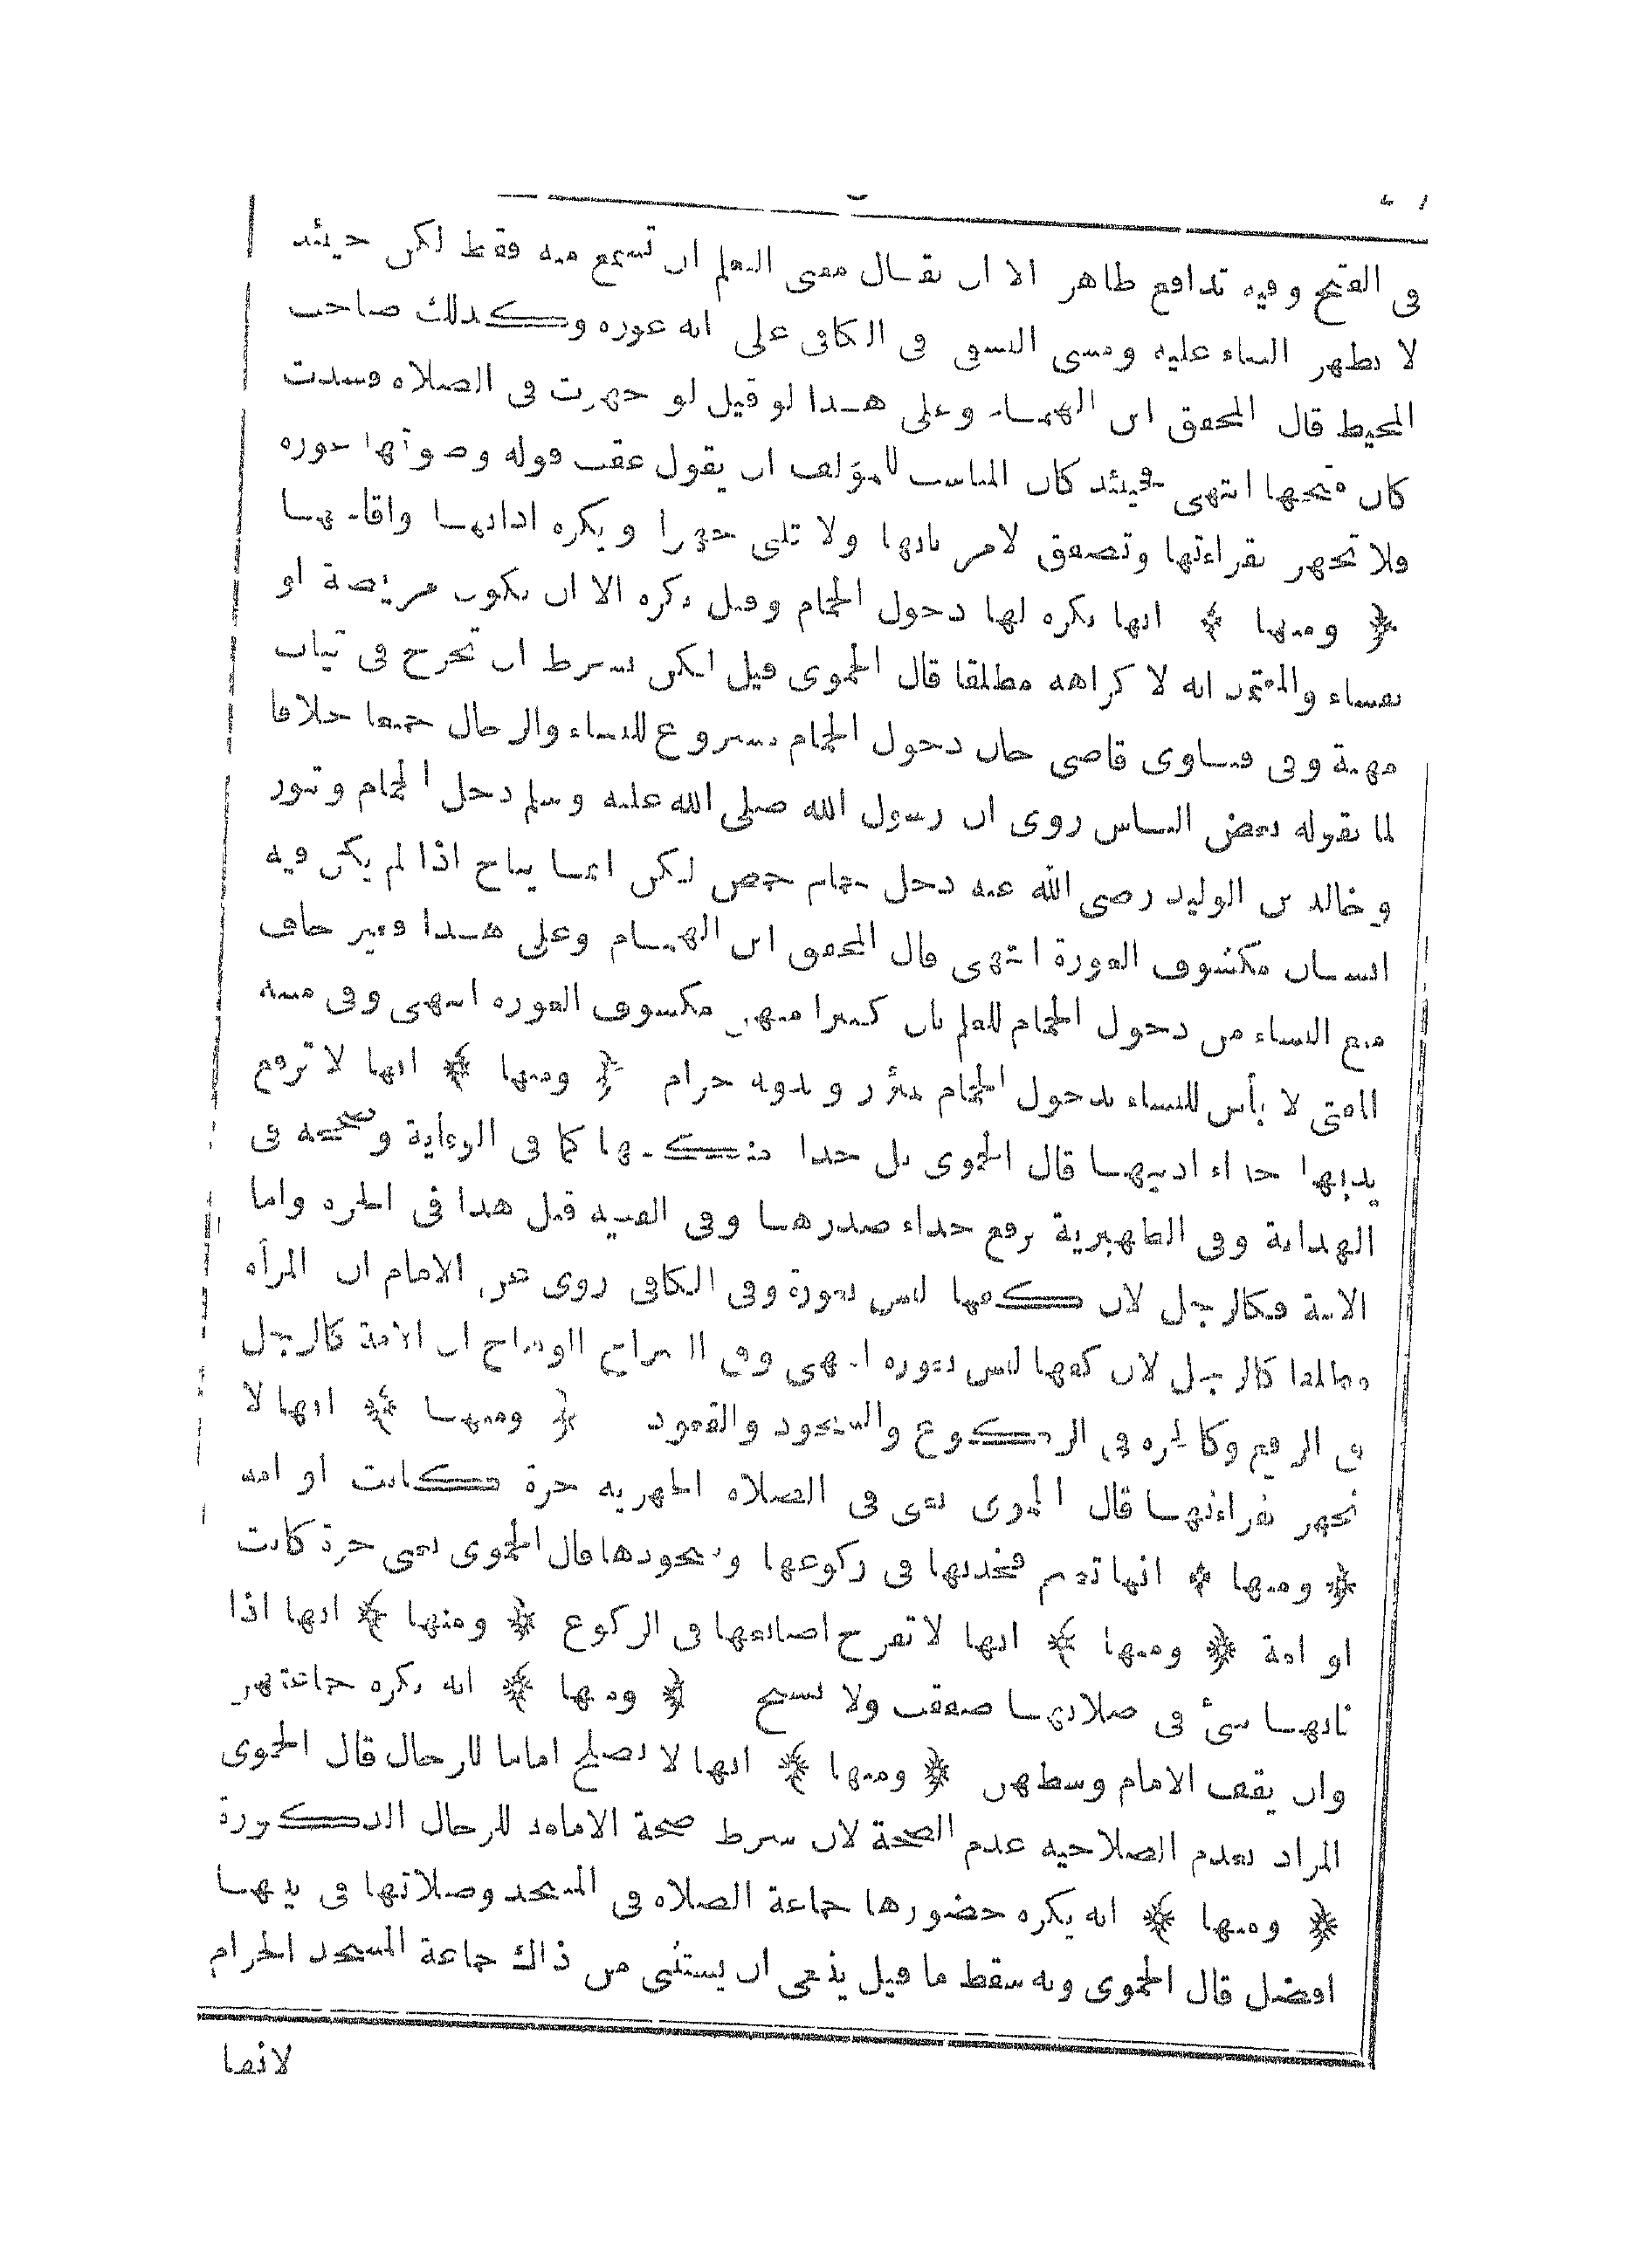 فى الفتح وفيه تدافع ظاهر الا ان يقال معنى التعلم ان تسمع منه فقط لكن حينئذ
لا يظهر البناء عليه ومشى النسفى فى الكافى على انه عورة وكذلك صاحب
المحيط قال المحقق ابن الهمام وعلى هذا لو قيل لو جهرت فى الصلاة فسدت
كان متجها انتهى فحينئذ كان المناسب للمؤلف ان يقول عقب قوله وصوتها عورة
ولا تجهر بقراءتها وتصفق لامر نابها ولا تلبى جهرا ويكره اذانها واقامتها
﴿ ومنها ﴾ انها يكره لها دخول الحمام وقيل يكره الا ان يكون مريضة او
نفساء والمعتمد انه لا كراهة مطلقا قال الحموى قيل لكن بشرط ان تخرج فى ثياب
مهنة وفى فتاوى قاضى خان دخول الحمام مشروع للنساء والرجال جميعا خلافا
لما يقوله بعض الناس روى ان رسول الله صلى الله عليه وسلم دخل الحمام وتنور
وخالد بن الوليد رضى الله عنه دخل حمام حمص لكن انما يباح اذا لم يكن فيه
انسان مكشوف العورة انتهى قال المحقق ابن الهمام وعلى هذا فغير خاف
منع النساء من دخول الحمام للعلم بان كثيرا منهن مكشوف العورة انتهى وفى منية
المفتى لا بأس للنساء بدخول الحمام بمئزر وبدونه حرام ﴿ ومنها ﴾ انها لا ترفع
يديها حذاء اذنيها قال الحموى بل حذا منكبها كما فى الوقاية وصححه فى
الهداية وفى الظهيرية ترفع حذاء صدرها وفى القنية قيل هذا فى الحرة واما
الامة فكالرجل لان كفها ليس بعورة وفى الكافى روى عن الامام ان المرأة
مطلقا كالرجل لان كفها ليس بعورة انتهى وفى السراج الوهاج ان الامة كالرجل
فى الرفع وكالحرة فى الركوع والسجود والقعود ﴿ ومنها ﴾ انها لا
تجهر بقراءتها قال الحموى يعنى فى الصلاة الجهرية حرة كانت او امة
﴿ ومنها ﴾ انها تضم فخذيها فى ركوعها وسجودها قال الحموى يعنى حرة كانت
او امة ﴿ ومنها ﴾ انها لا تفرج اصابعها فى الركوع ﴿ ومنها ﴾ انها اذا
نابها شئ فى صلاتها صفقت ولا تسبح ﴿ ومنها ﴾ انه يكره جماعتهن
وان يقف الامام وسطهن ﴿ ومنها ﴾ انها لا تصلح اماما للرجال قال الحموى
المراد بعدم الصلاحية عدم الصحة لان شرط صحة الامامة للرجال الذكورة
﴿ ومنها ﴾ انه يكره حضورها جماعة الصلاة فى المسجد وصلاتها فى بيتها
افضل قال الحموى وبه سقط ما قيل ينبغى ان يستثنى من ذلك جماعة المسجد الحرام
لانها